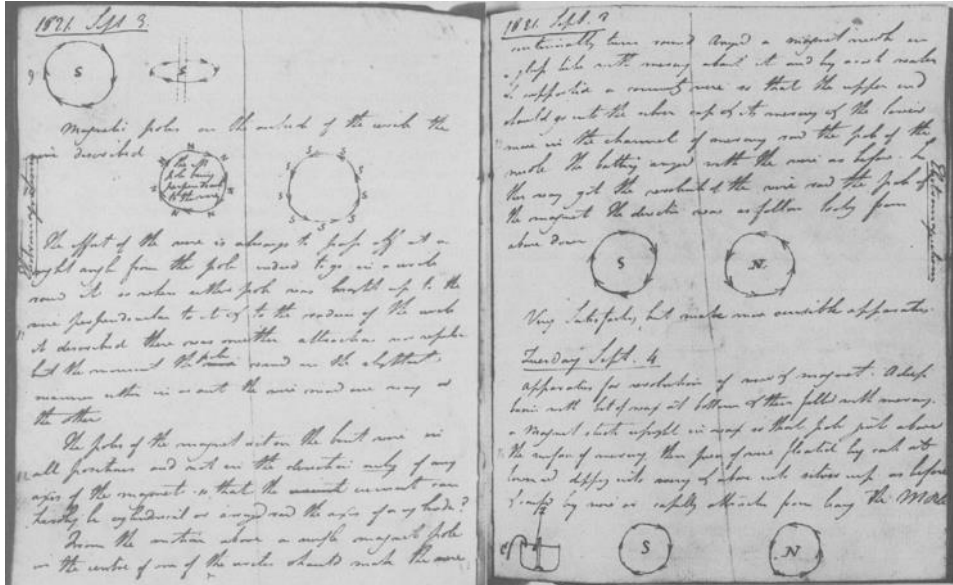 1821 Sept 3.
S
S
Magnetic poles on the outside of the circle the
wire described
N N N N N N N N
The N pole being perpendicular to the ring
S S S S S S S S
The effort of the wire is always to pass off at a
right angle from the pole indeed to go in a circle
round it so when either pole was brought up to the
wire perpendicular to it & to the radius of the circle
it described there was neither attraction nor repulsion
but the moment the pole varied in the slightest
manner either in or out the wire moved one way or
the other
The poles of the magnet act on the bent wire in
all positions and not in the direction only of any
axis of the magnet. so that the current can
hardly be cylindrical or arranged round the axis of a cylinder?
From the motion above a single magnet pole
in the centre of one of the circles should make the wire
Electromagnetism
1821. Sept. 3
continually turn round Arranged a magnet needle in
a glass tube with mercury about it and by a cork water
& supported a connecting wire so that the upper end
should go into the silver cup & its mercury & the lower
move in the channel of mercury round the pole of the
needle The battery arranged with the wire as before. In
this way got the revolution of the wire round the pole of
the magnet The direction was as follows looking from
above down
S
N
Electromagnetism
Very Satisfactory, but make more sensible apparatus
Tuesday Sept. 4
apparatus for revolution of wire & magnet. A deep
basin with bit of wax at bottom & then filled with mercury.
a Magnet stuck upright in wax so that pole just above
the surface of mercury then piece of wire floated by cork at
lower end dipping into mercury & above into silver cup as before
by wire or capilly attraction from leaving the Middle
S
N